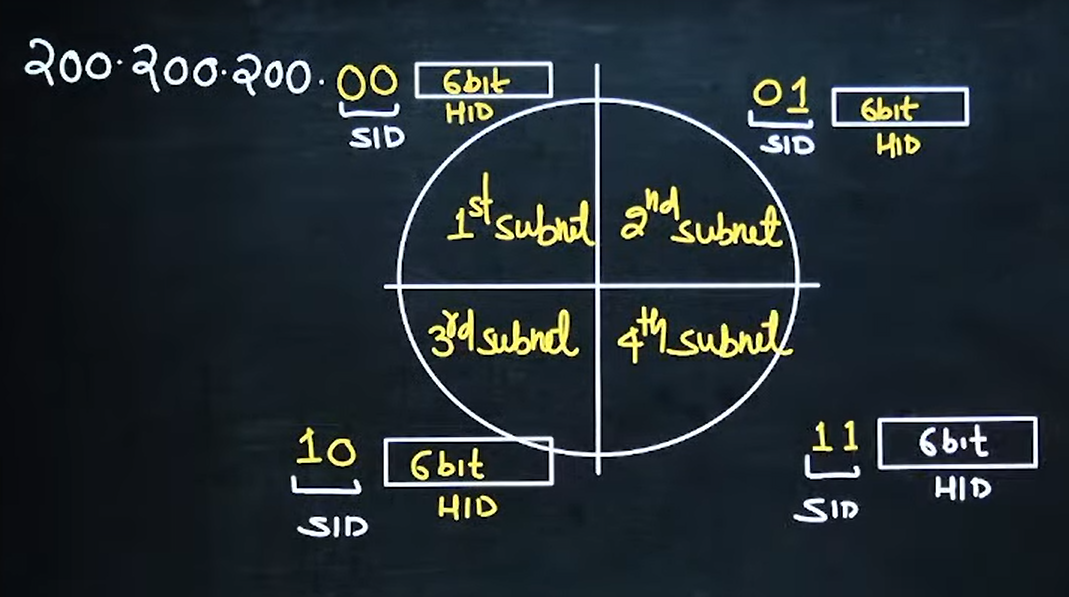 200.200.200.00 6bit
SID HID
01 6bit
SID HID
1st subnet 2nd subnet
3rd subnet 4th subnet
10 6bit
SID HID
11 6bit
SID HID